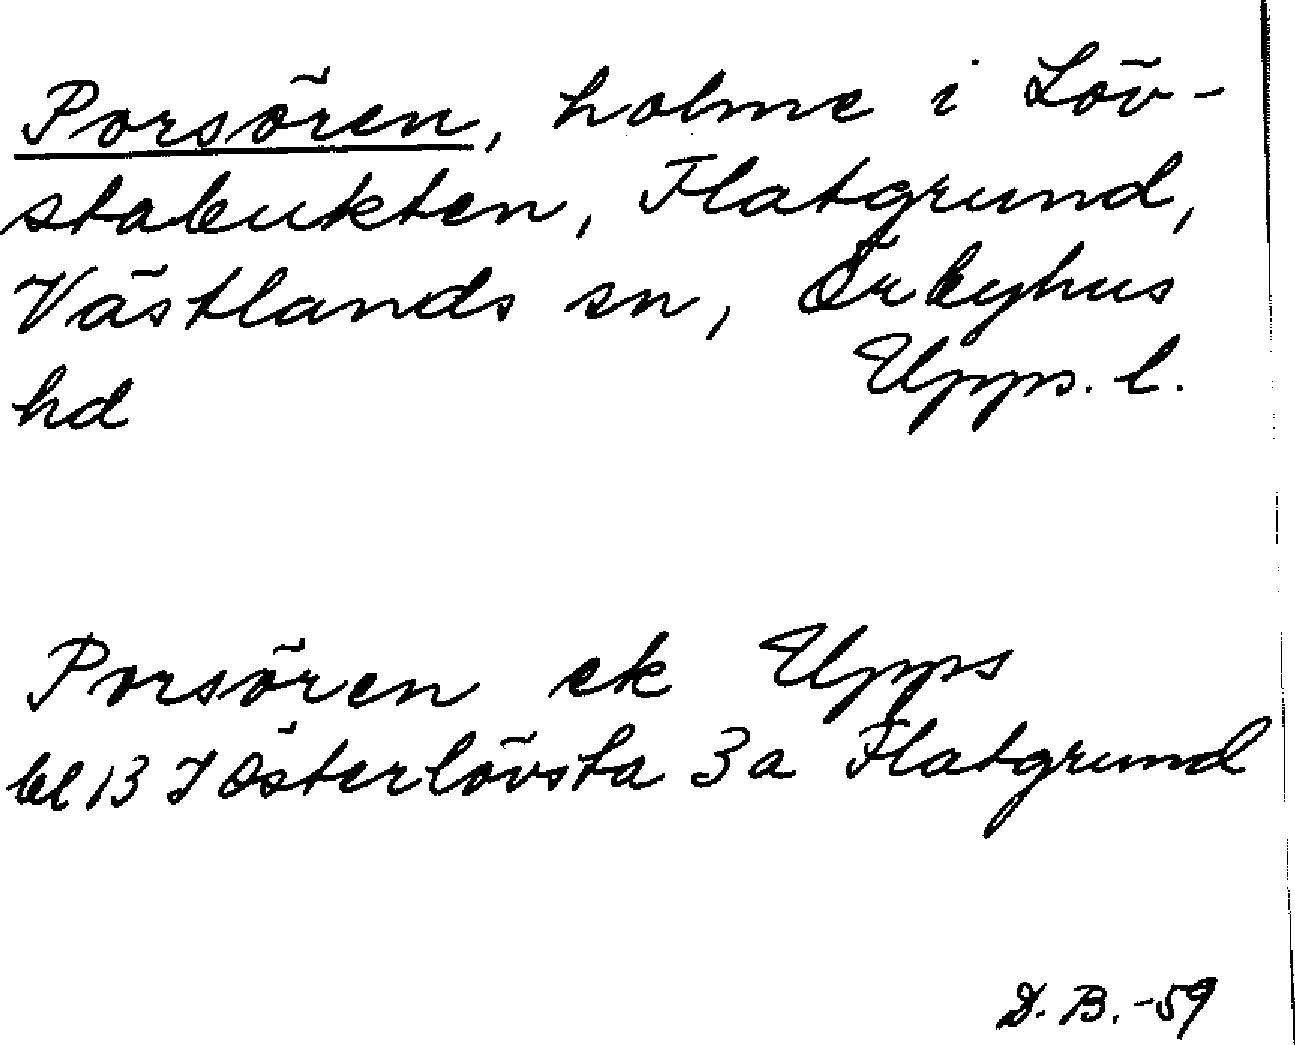 Porsören, holme i Löv-
stabukten, Flatgrund,
Västlands sn, Örbyhus
hd Upps. l.
Porsören ek Upps
bl 13 I Österlövsta 3a Flatgrund
D. B. -59